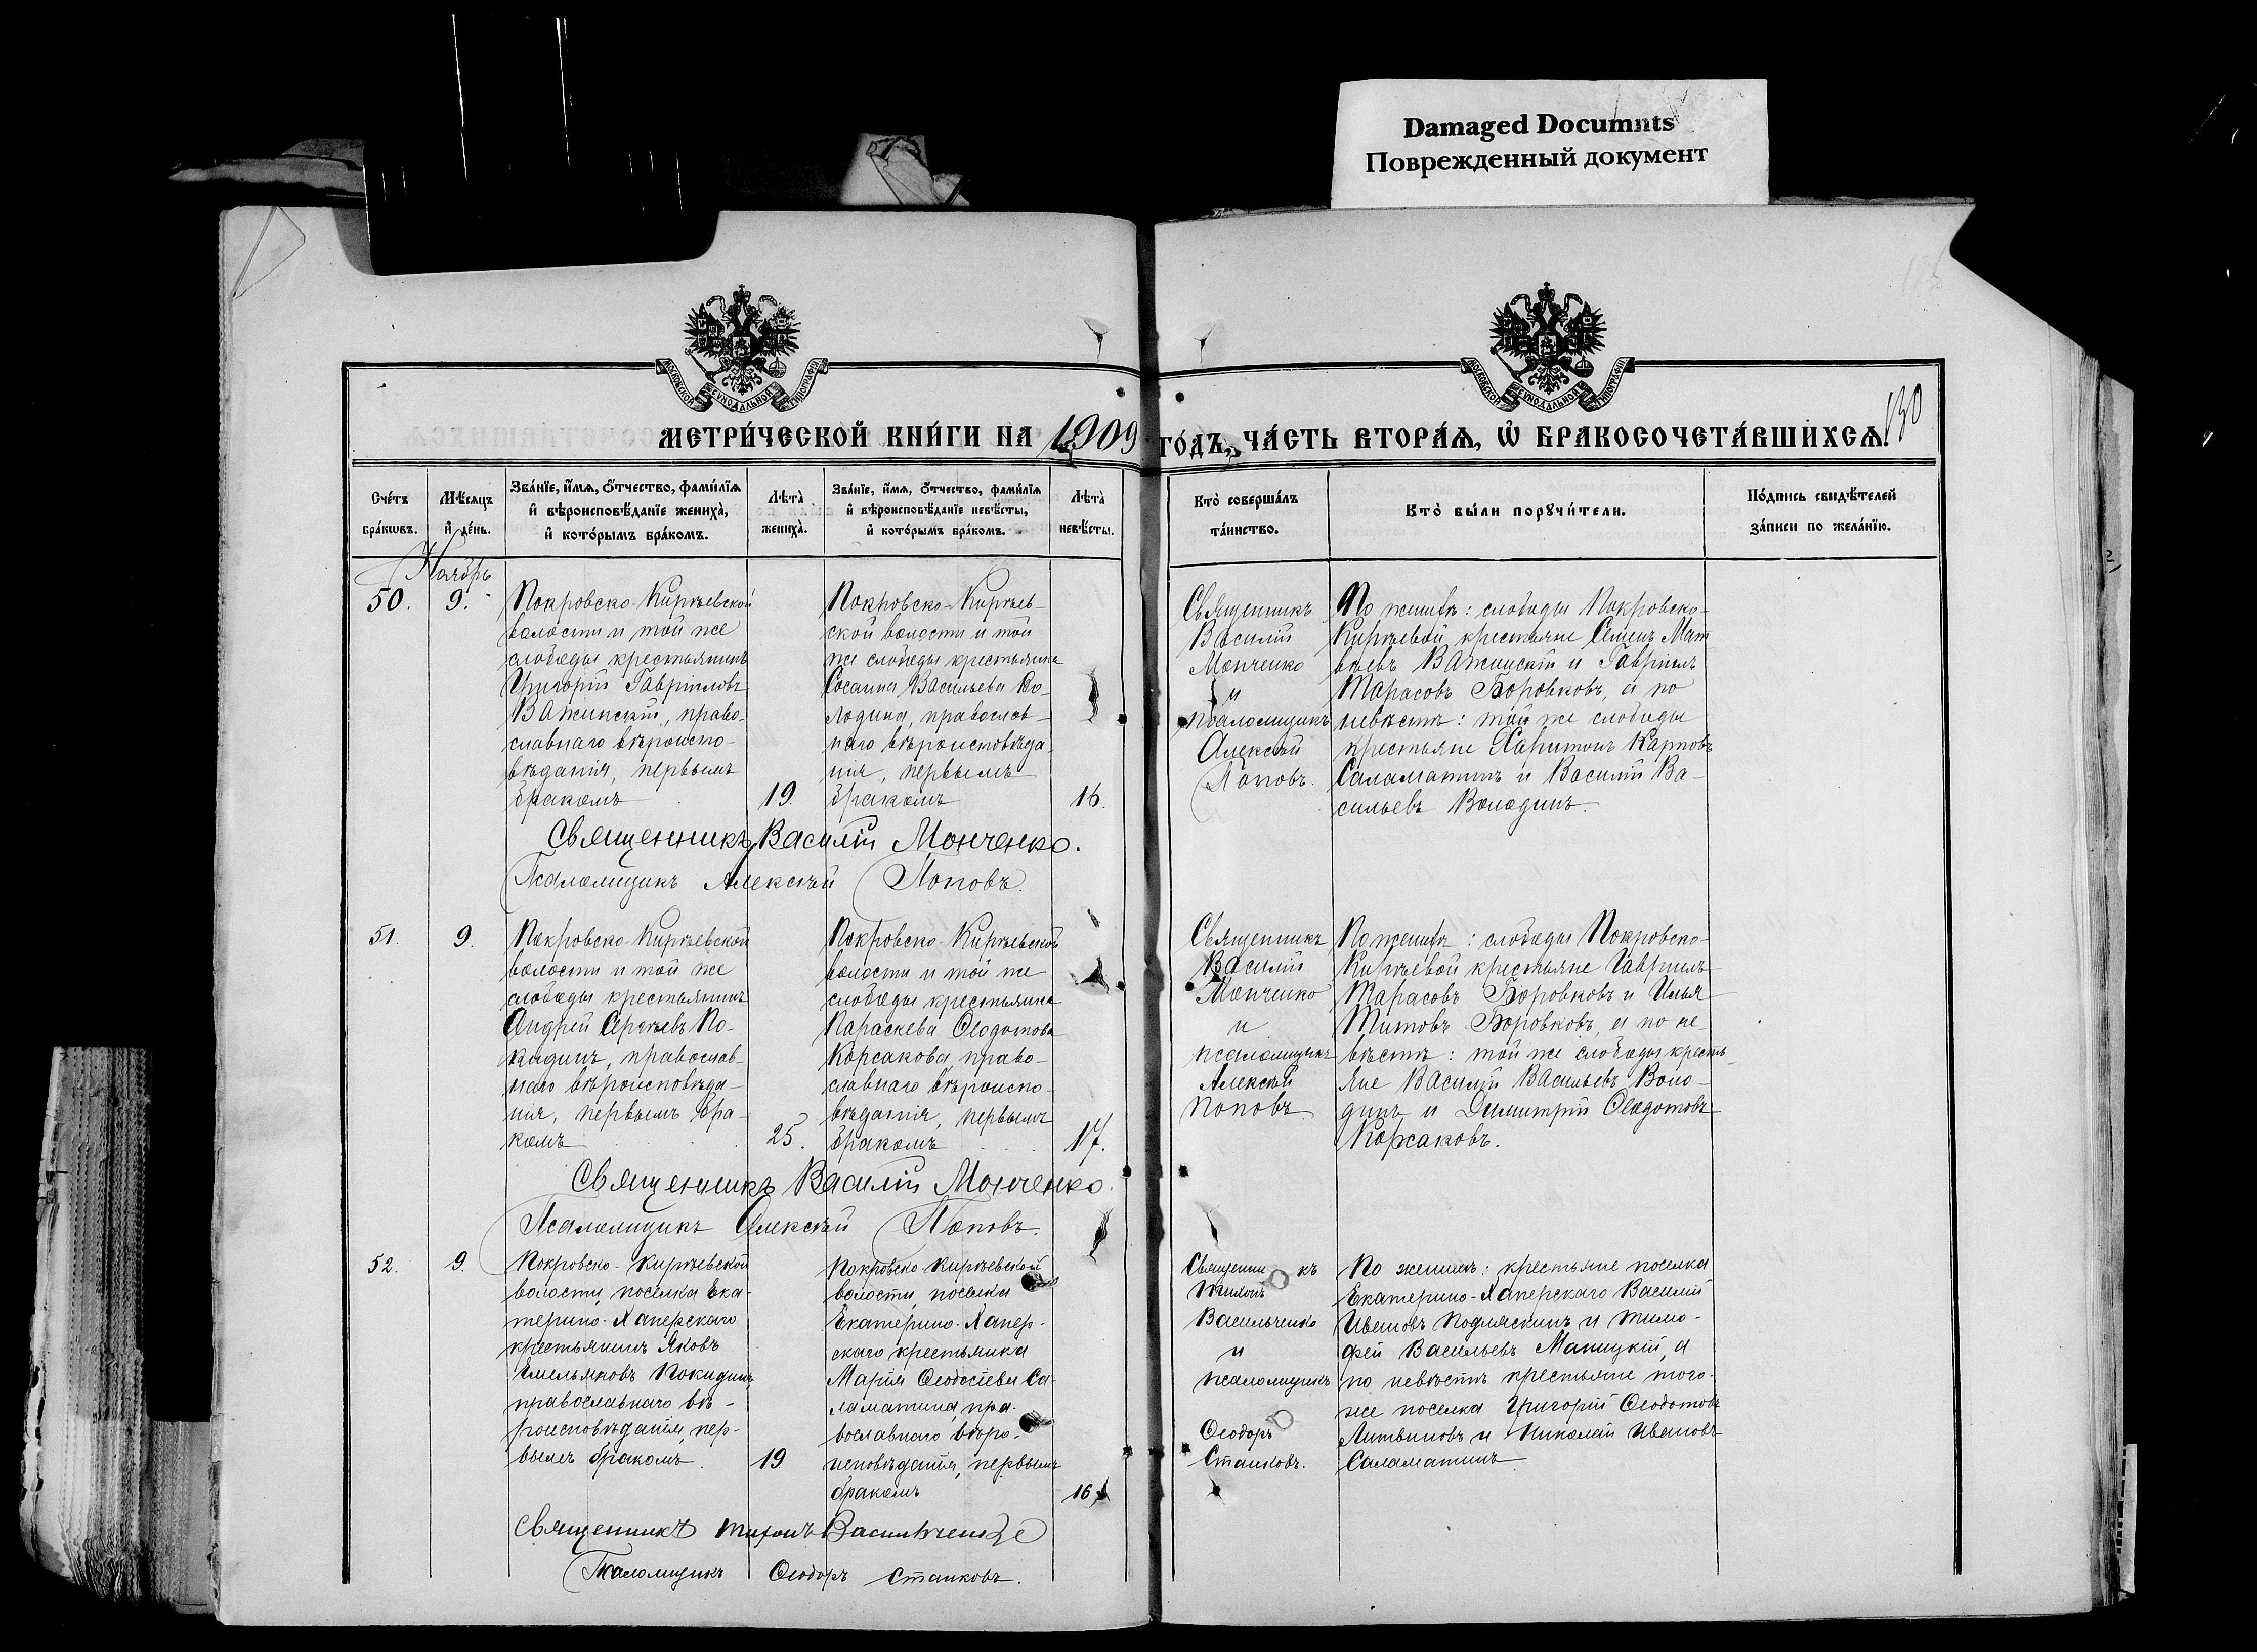 Damaged Documnts
Поврежденный документ
МОСКОВСКОЙ СѴНОДАЛЬНОЙ ТИПОГРАФІИ
МОСКОВСКОЙ СѴНОДАЛЬНОЙ ТИПОГРАФІИ
130
МЕТРИ́ЧЕСКОЙ КНИ́ГИ НА 1909 ГО́ДЪ, ЧА́СТЬ ВТОРА́Ѧ, Ѡ҆ БРАКОСОЧЕТА́ВШИХСѦ.
Сче́тъ
бра́кѡвъ.
Мѣ́сѧцъ
и҆ де́нь.
Зва́нїе, и҆́мѧ, ѻ҆́тчество, фами́лїѧ
и҆ вѣроисповѣ́данїе жениха̀,
и҆ кото́рымъ бра́комъ.
Лѣ́та̀
жениха̀.
Зва́нїе, и҆́мѧ, ѻ҆́тчество, фами́лїѧ
и҆ вѣроисповѣ́данїе невѣ́сты,
и҆ кото́рымъ бра́комъ.
Лѣ́та̀
невѣ́сты.
Кто̀ соверша́лъ
та́инство.
Кто̀ бы́ли порꙋчи́тели.
По́дпись свидѣ́телей
за́писи по жела́нїю.
Ноябрь
50.
9.
Покровско-Киргѣевской
волости и той же
слободы крестьянинъ
Григорій Гавріиловъ
Важинскій, право-
славнаго вѣроиспо-
вѣданія, первымъ
бракомъ
19.
Покровско-Киргѣев-
ской волости и той
же слободы крестьянка
Сосанна Васильева Во-
лодина, православ-
наго вѣроисповѣда-
нія, первымъ
бракомъ
16.
Священникъ
Василій
Монченко
и
псаломщикъ
Алексѣй
Поповъ.
По женихѣ: слободы Покровско-
Киргѣевой крестьяне Семенъ Мат
вѣевъ Важинскій и Гавріилъ
Тарасовъ Боровковъ, а по
невѣстѣ: той же слободы
крестьяне Харитонъ Карповъ
Саламатинъ и Василій Ва-
сильевъ Володинъ.
Священникъ Василій Монченко.
Псаломщикъ Алексѣй Поповъ.
51.
9.
Покровско-Киргѣевской
волости и той же
слободы крестьянинъ
Андрей Сергѣевъ По-
кидинъ, православ-
наго вѣроисповѣда-
нія, первымъ бра-
комъ
25.
Покровско-Киргѣевской
волости и той же
слободы крестьянка
Параскева Ѳеодотова
Корсакова, право-
славнаго вѣроиспо-
вѣданія, первымъ
бракомъ
17.
Священникъ
Василій
Монченко
и
псаломщикъ
Алексѣй
Поповъ
По женихѣ: слободы Покровско-
Киргѣевой крестьяне Гавриилъ
Тарасовъ Боровковъ и Илья
Титовъ Боровковъ, а по не-
вѣстѣ: той же слободы кресть-
яне Василій Васильевъ Воло-
динъ и Димитрій Ѳеодотовъ
Корсаковъ.
Священникъ Василій Монченко.
Псаломщикъ Алексѣй Поповъ.
52.
9.
Покровско-Киргѣевской
волости, поселка Ека-
терино-Хаперскаго
крестьянинъ Яковъ
Емельяновъ Покидинъ,
православнаго вѣ-
роисповѣданія, пер-
вымъ бракомъ.
19.
Покровско-Киргѣевской
волости, поселка
Екатерино-Хапер-
скаго крестьянка
Марія Ѳеодосіева Са-
ламатина пра-
вославнаго вѣро-
исповѣданія, первымъ
бракомъ
16
Священникъ
Тихонъ
Васильченко
и
псаломщикъ
Ѳеодоръ
Станковъ.
По женихѣ: крестьяне поселка
Екатерино-Хаперскаго Василій
Ивановъ Подляскинъ и Тимо-
фей Васильевъ Маницкій, а
по невѣстѣ крестьяне того-
же поселка Григорій Ѳеодотовъ
Литвиновъ и Николай Ивановъ
Саламатинъ
Священникъ Тихонъ Васильченко
Псаломщикъ Ѳеодоръ Станковъ.